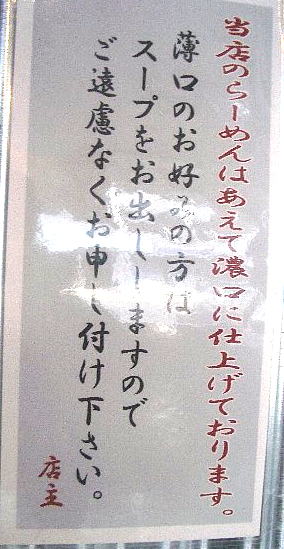 当店のらーめんはあえて濃口に仕上げております。
薄口のお好みの方は
スープをお出ししますので
ご遠慮なくお申し付け下さい。
店主